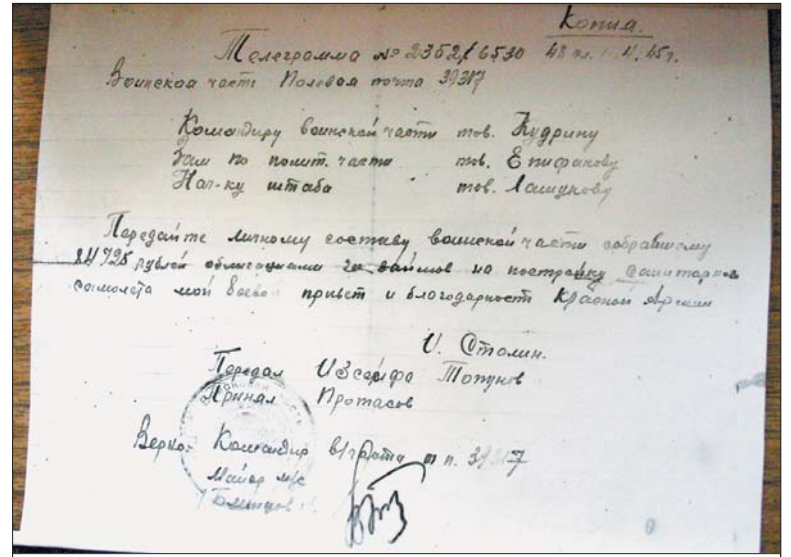 Копия.
Телеграмма № 2352/6530 48 сл. 4. 45 г.
Воинская часть Полевая почта 39317
Командиру воинской части тов. Кудрину
Зам по полит. части тов. Епифанову
Нач-ку штаба тов. Лашукову
Передайте личному составу воинской части собравшему
84725 рублей облигациями займов на постройку санитарного
самолета мой боевой привет и благодарность Красной Армии
И. Сталин.
Передал Топунов
Принял Протасов
Верно: Командир в/части п п. 39317
Майор м/с